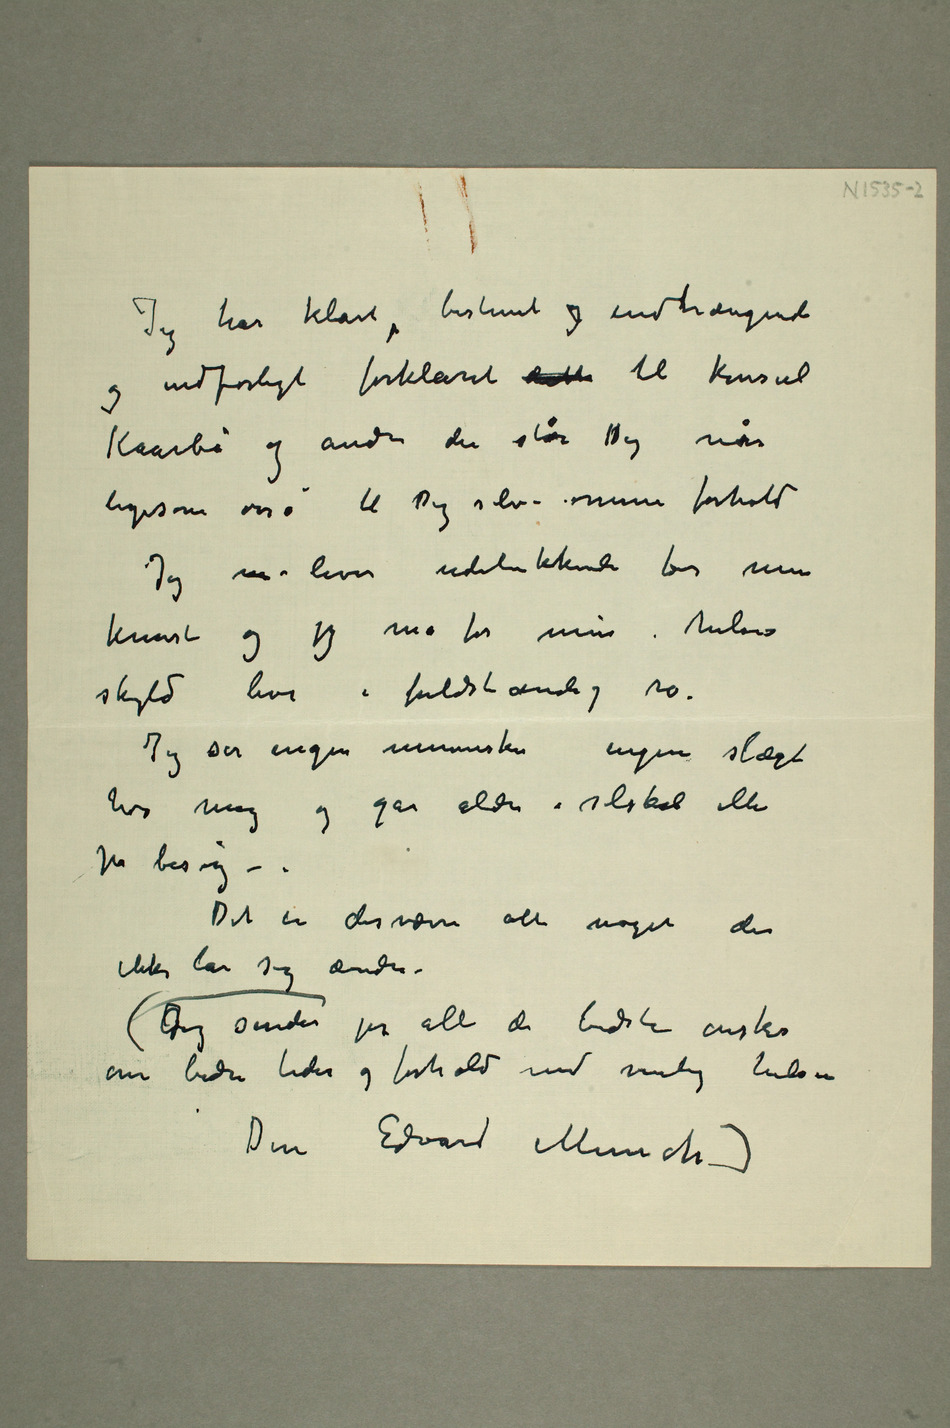 N1535-2
Jeg har klart, bestemt og indtrængende
og udførligt forklaret til Konsul
Kaarbø og andre der står Dig nær
ligesom også til Dig selv – mine forhold
Jeg lever udelukkende for min
kunst og jeg må for min helses
skyld leve i fuldstændig ro.
Jeg ser ingen mennesker ingen slægt
hos mig og går aldri i selskab eller
på besøg –.
Det er desværre alt noget der
ikke lar sig ændre –
(Jeg sender jer alle de bedste ønsker
om bedre tider og forhold med venlig hilsen
Din Edvard Munch)